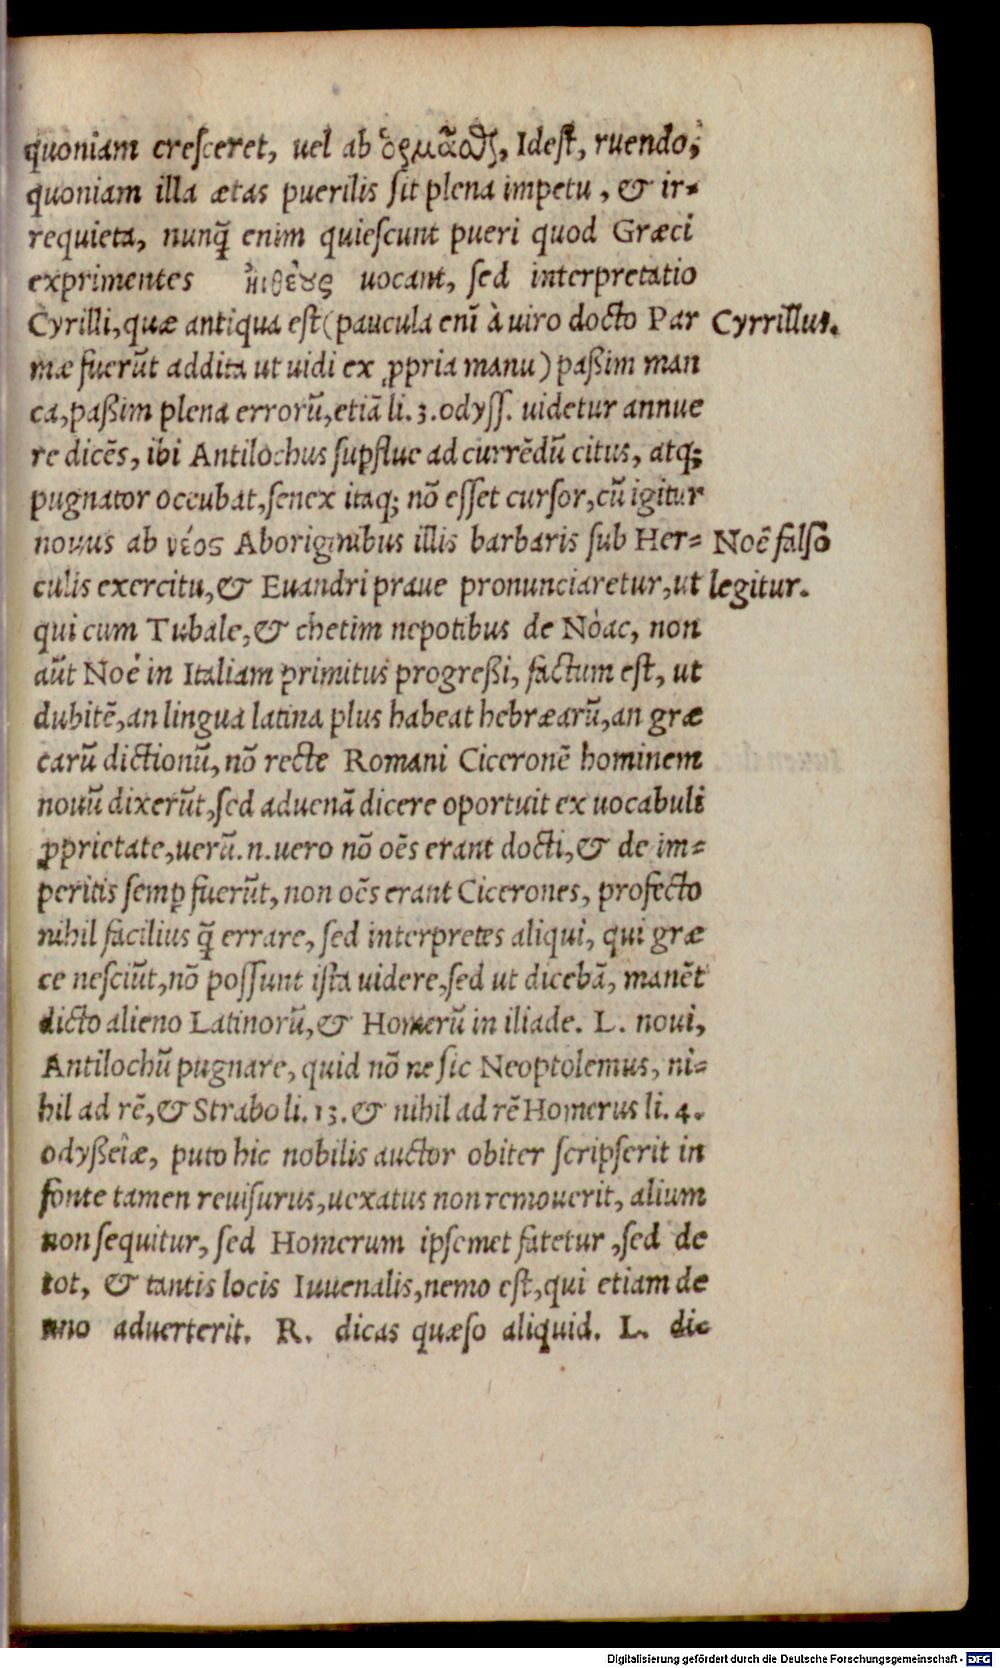 quoniam creſceret, uel ab ὁρμᾶσθαι, Ideſt, ruendo;
quoniam illa ætas puerilis ſit plena impetu, & ir=
requieta, nunq̃ enim quieſcunt pueri quod Græci
exprimentes ἠιθέους uocant, ſed interpretatio
Cyrilli, quæ antiqua eſt (paucula enī à uiro docto Par
Cyrrillus.
mæ fuerūt addita ut uidi ex ꝓpria manu) paßim man
ca, paßim plena errorū, etiā li. 3. odyſſ. uidetur annue
re dicēs, ibi Antilochus ſuꝑflue ad currēdū citus, atq;
pugnator occubat, ſenex itaq; nō eſſet curſor, cū igitur
nouus ab νέος Aboriginibus illis barbaris ſub Her=
Noē falſo
culis exercitu, & Euandri praue pronunciaretur, ut
legitur.
qui cum Tubale, & chetim nepotibus de Nòac, non
aūt Noé in Italiam primitus progreßi, factum eſt, ut
dubitē, an lingua latina plus habeat hebræarū, an græ
carū dictionū, nō recte Romani Ciceronē hominem
nouū dixerūt, ſed aduenā dicere oportuit ex uocabuli
ꝓprietate, uerū. n. uero nō oēs erant docti, & de im=
peritis ſemꝑ fuerūt, non oēs erant Cicerones, profecto
nihil facilius q̃ errare, ſed interpretes aliqui, qui græ
ce neſciūt, nō poſſunt iſta uidere, ſed ut dicebā, manēt
dicto alieno Latinorū, & Homerū in iliade. L. noui,
Antilochū pugnare, quid nō ne ſic Neoptolemus, ni=
hil ad rē, & Strabo li. 13. & nihil ad rē Homerus li. 4.
odyßeiæ, puto hic nobilis auctor obiter ſcripſerit in
fonte tamen reuiſurus, uexatus non remouerit, alium
non ſequitur, ſed Homerum ipſemet fatetur, ſed de
tot, & tantis locis Iuuenalis, nemo eſt, qui etiam de
uno aduerterit. R. dicas quæſo aliquid. L. dic
Digitalisierung gefördert durch die Deutsche Forschungsgemeinschaft - DFG